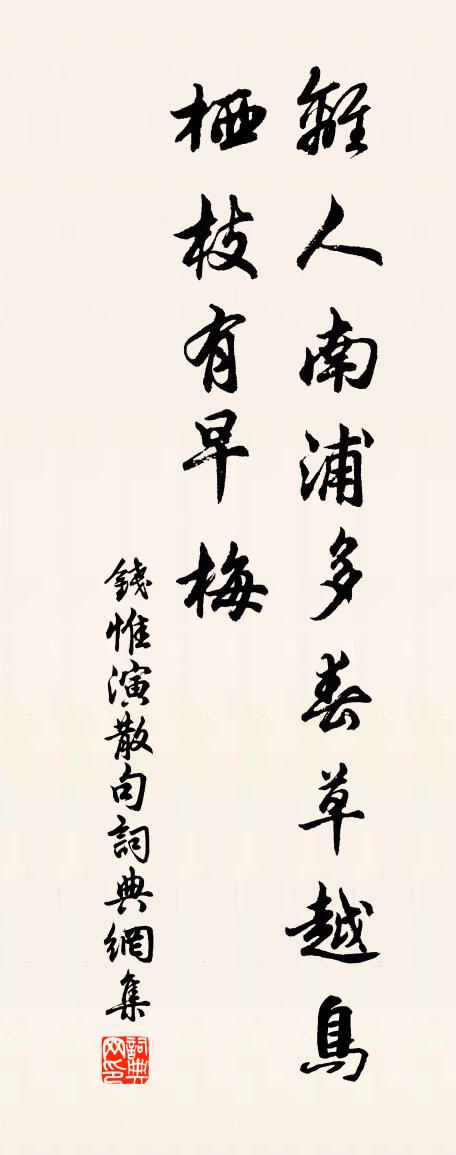 離人南浦多春草越鳥
栖枝有早梅
錢惟演散句詞典網集
詞典网印